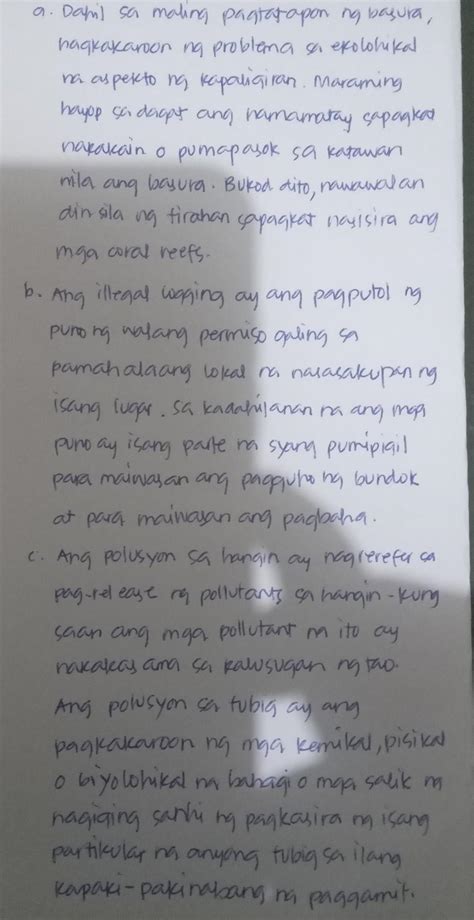 a. Dahil sa maling pagtatapon ng basura,
nagkakaroon ng problema sa ekolohikal
na aspekto ng kapaligiran. Maraming
hayop sa dagat ang namamatay sapagkat
nakakain o pumapasok sa katawan
nila ang basura. Bukod dito, nawawalan
din sila ng tirahan sapagkat nasisira ang
mga coral reefs.
b. Ang illegal logging ay ang pagputol ng
puno ng walang permiso galing sa
pamahalaang lokal na nasasakupan ng
isang lugar. Sa kadahilanan na ang mga
puno ay isang parte na syang pumipigil
para maiwasan ang pagguho ng bundok
at para maiwasan ang pagbaha.
c. Ang polusyon sa hangin ay nagrerefer sa
pag-release ng pollutants sa hangin - kung
saan ang mga pollutant na ito ay
nakakasama sa kalusugan ng tao.
Ang polusyon sa tubig ay ang
pagkakaroon ng mga kemikal, pisikal
o biyolohikal na bahagi o mga salik na
nagiging sanhi ng pagkasira ng isang
partikular na anyong tubig sa ilang
kapaki-pakinabang na paggamit.